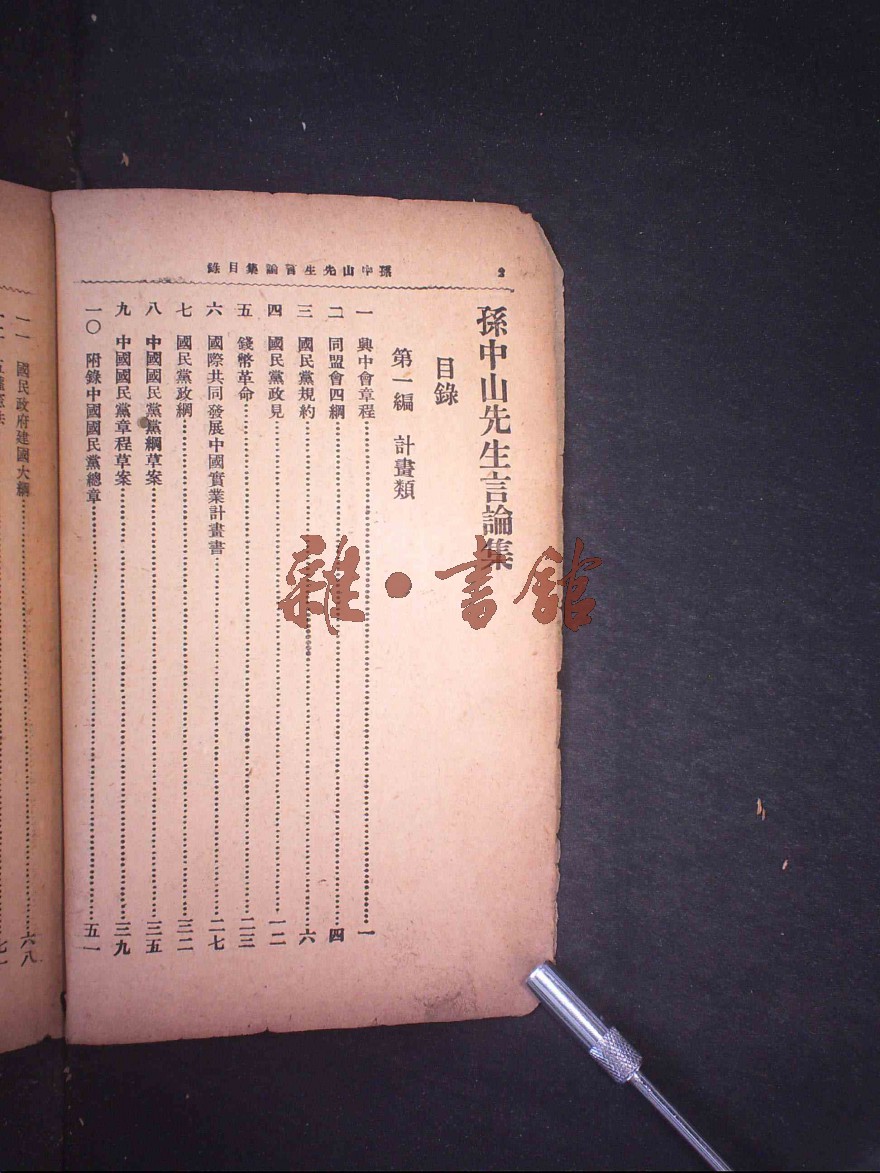 孫中山先生言論集目錄
2
孫中山先生言論集
目錄
第一編 計畫類
一 興中會章程……一
二 同盟會四綱……四
三 國民黨規約……六
四 國民黨政見……一二
五 錢幣革命……二三
六 國際共同發展中國實業計畫書……二七
七 國民黨政綱……三二
八 中國國民黨黨綱草案……三五
九 中國國民黨章程草案……三九
一〇 附錄中國國民黨總章……五一
一一 國民政府建國大綱……六八
雜·書館